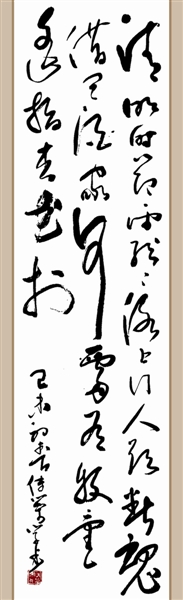 清明时节雨纷纷路上行人欲断魂
借问酒家何处有牧童
遥指杏花村